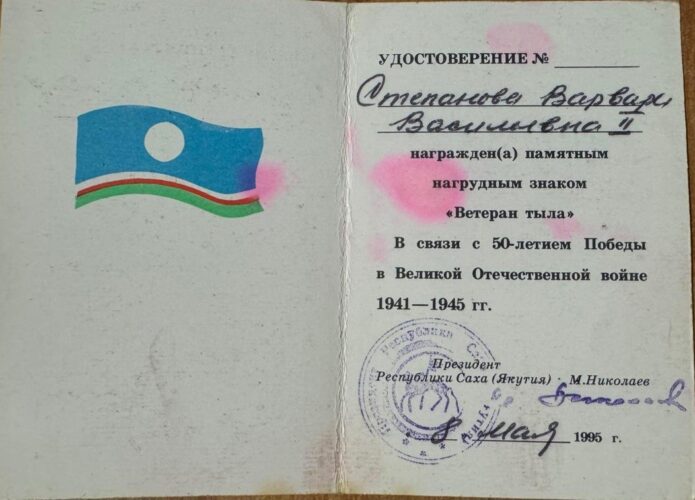 УДОСТОВЕРЕНИЕ №
Степанова Варвара
Васильевна II
награжден(а) памятным
нагрудным знаком
«Ветеран тыла»
В связи с 50-летием Победы
в Великой Отечественной войне
1941—1945 гг.
Республика Саха
Президент
Республики Саха (Якутия) · М.Николаев
8 Мая 1995 г.